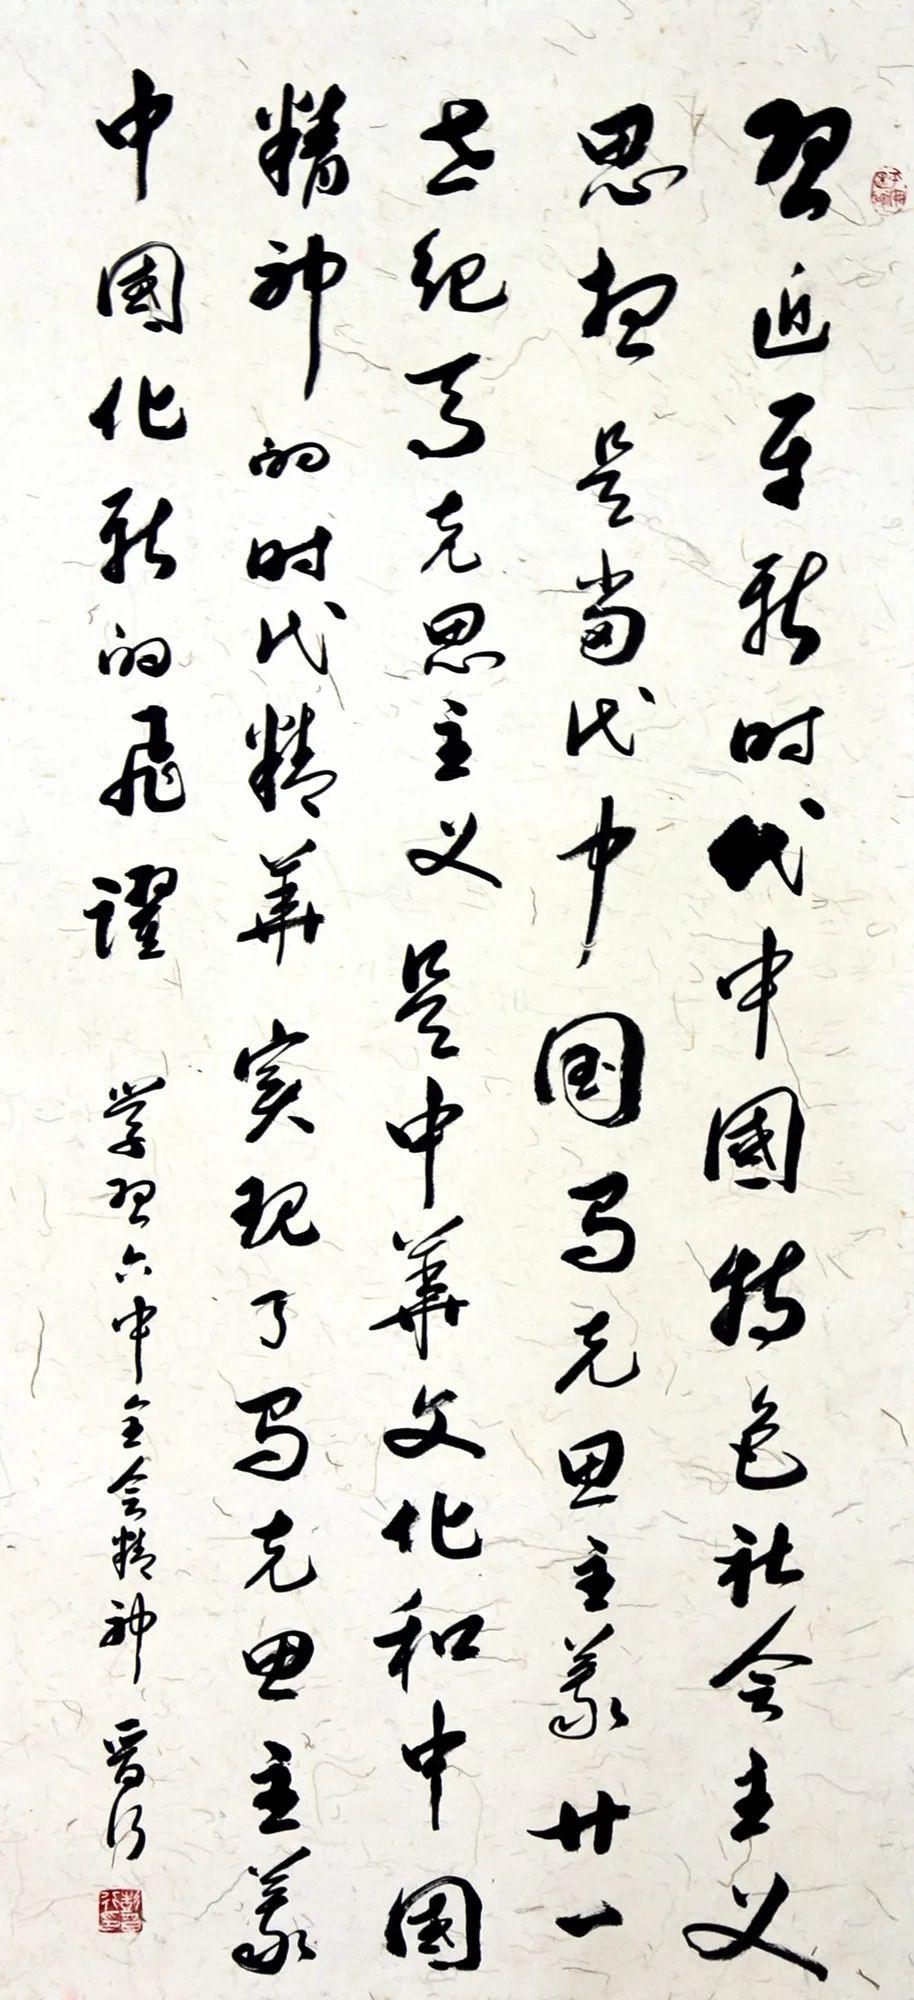 习近平新时代中國特色社会主义
思想是当代中国马克思主義廿一
世纪马克思主义是中華文化和中國
精神的时代精華实现了马克思主義
中國化新的飛躍
学习六中全会精神